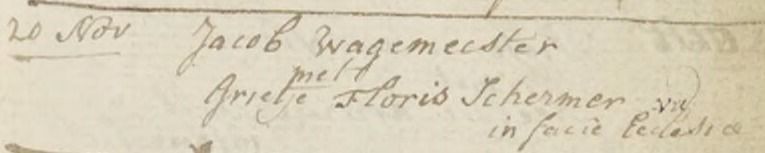 20 Nov Jacob Wagemeester
met
Grietje Floris Schermer
in facie Ecclesiæ